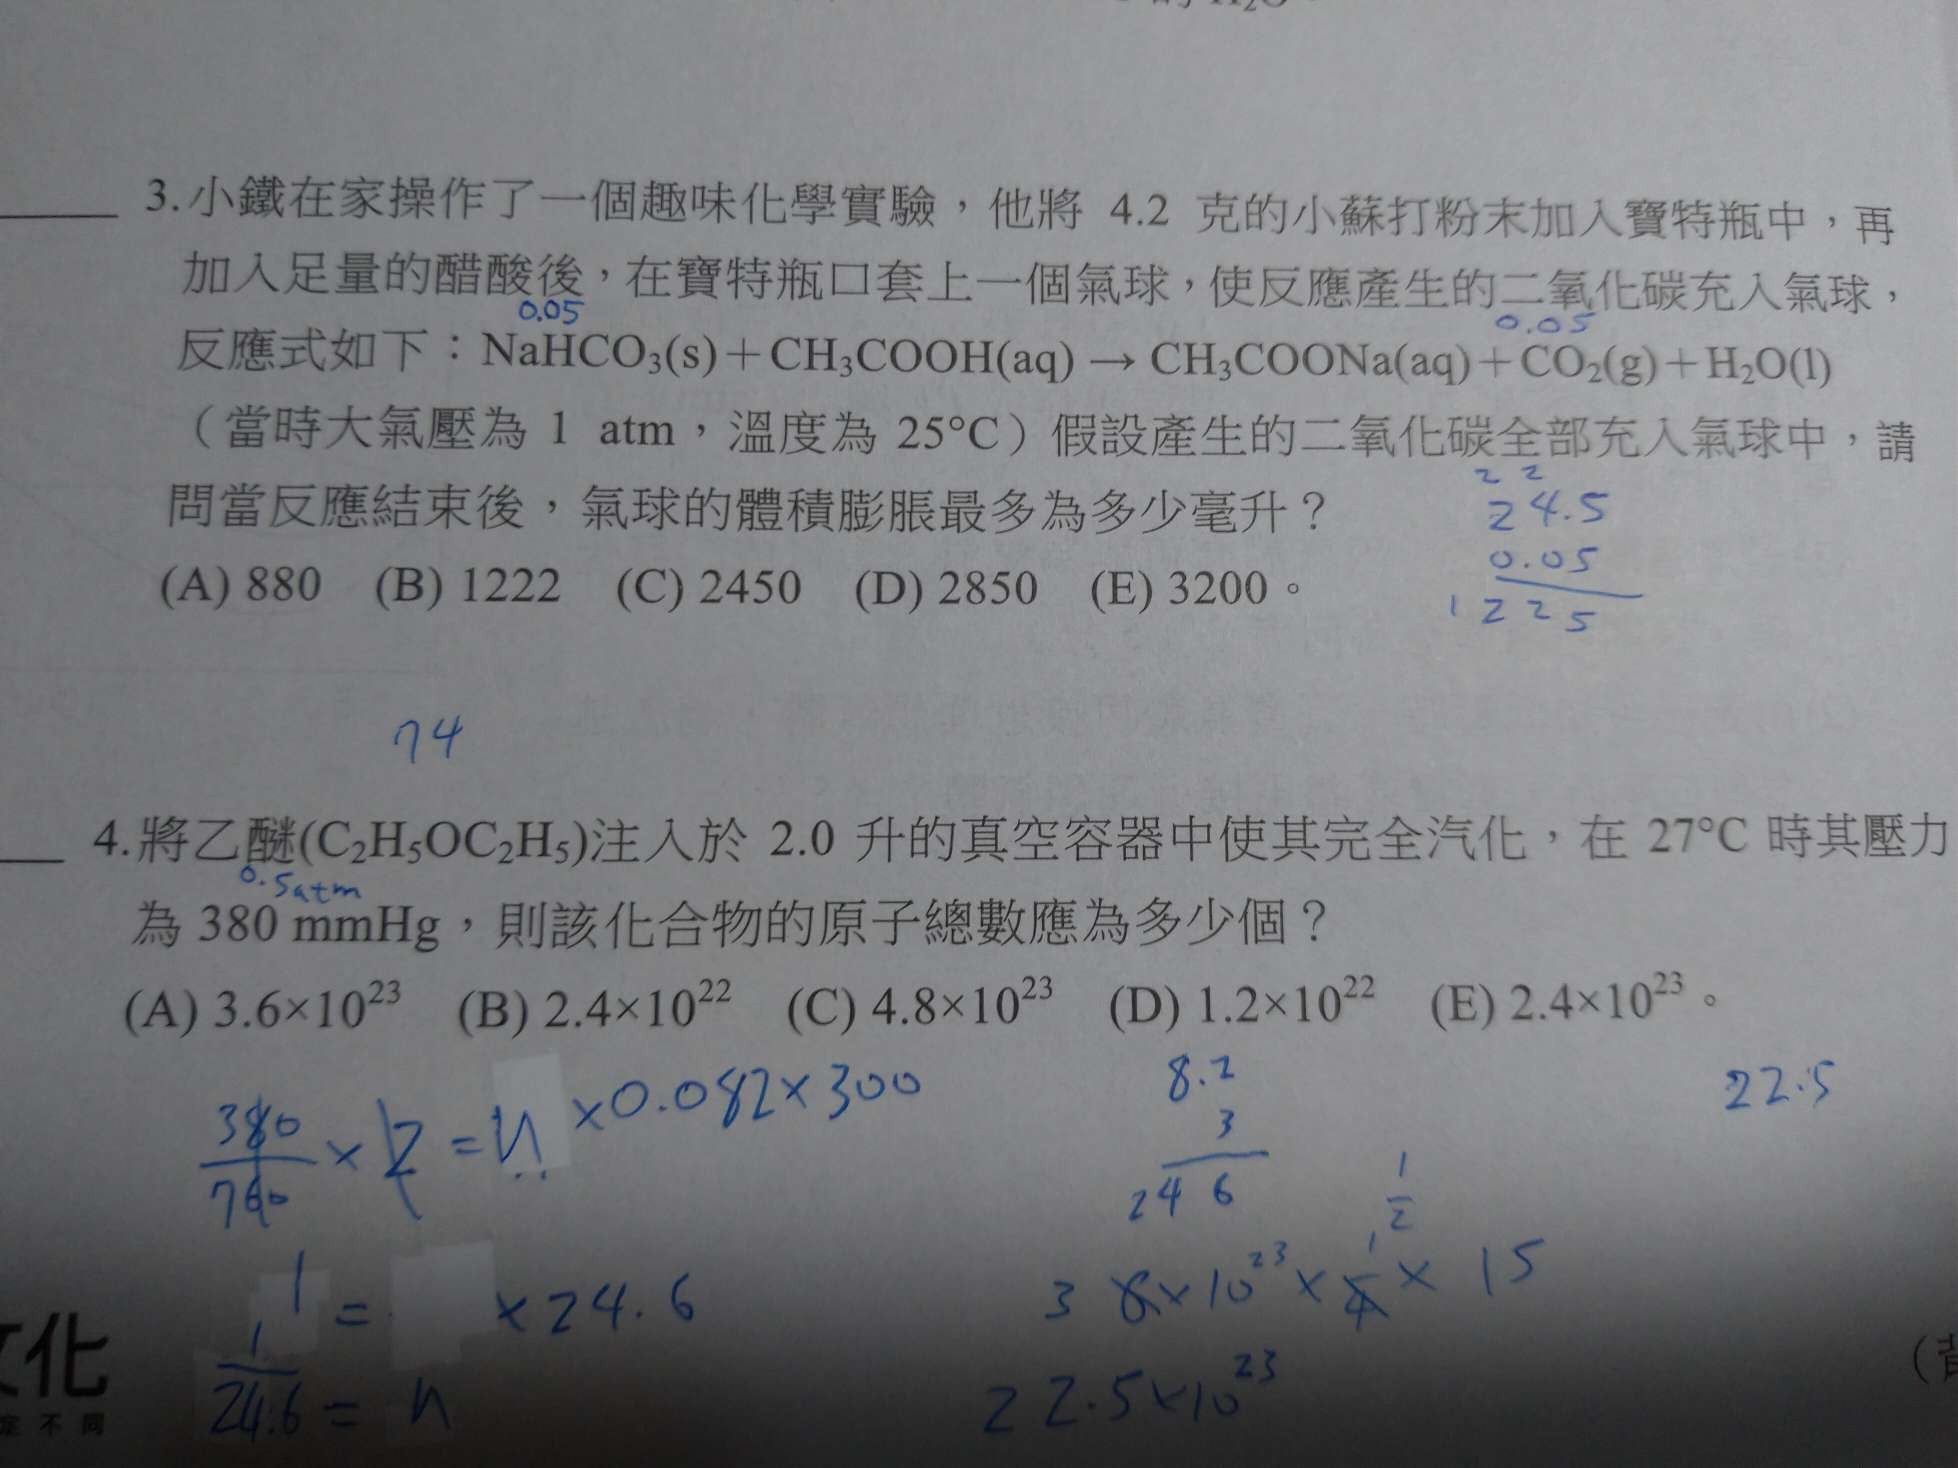 H₂O。
3.小鐵在家操作了一個趣味化學實驗，他將 4.2 克的小蘇打粉末加入寶特瓶中，再
加入足量的醋酸後，在寶特瓶口套上一個氣球，使反應產生的二氧化碳充入氣球，
0.05 0.05
反應式如下：NaHCO₃(s)＋CH₃COOH(aq) → CH₃COONa(aq)＋CO₂(g)＋H₂O(l)
（當時大氣壓為 1 atm，溫度為 25°C）假設產生的二氧化碳全部充入氣球中，請
問當反應結束後，氣球的體積膨脹最多為多少毫升？
2 2
24.5
0.05
1225
(A) 880 (B) 1222 (C) 2450 (D) 2850 (E) 3200。
74
4.將乙醚(C₂H₅OC₂H₅)注入於 2.0 升的真空容器中使其完全汽化，在 27°C 時其壓力
0.5atm
為 380 mmHg，則該化合物的原子總數應為多少個？
(A) 3.6×10²³ (B) 2.4×10²² (C) 4.8×10²³ (D) 1.2×10²² (E) 2.4×10²³。
380/760 × 2 = n × 0.082 × 300
8.2
3
246
22.5
1 = × 24.6
1/24.6 = n
1/2
3 6×10²³ × 1/4 × 15
22.5×10²³
文化
定不同
（背